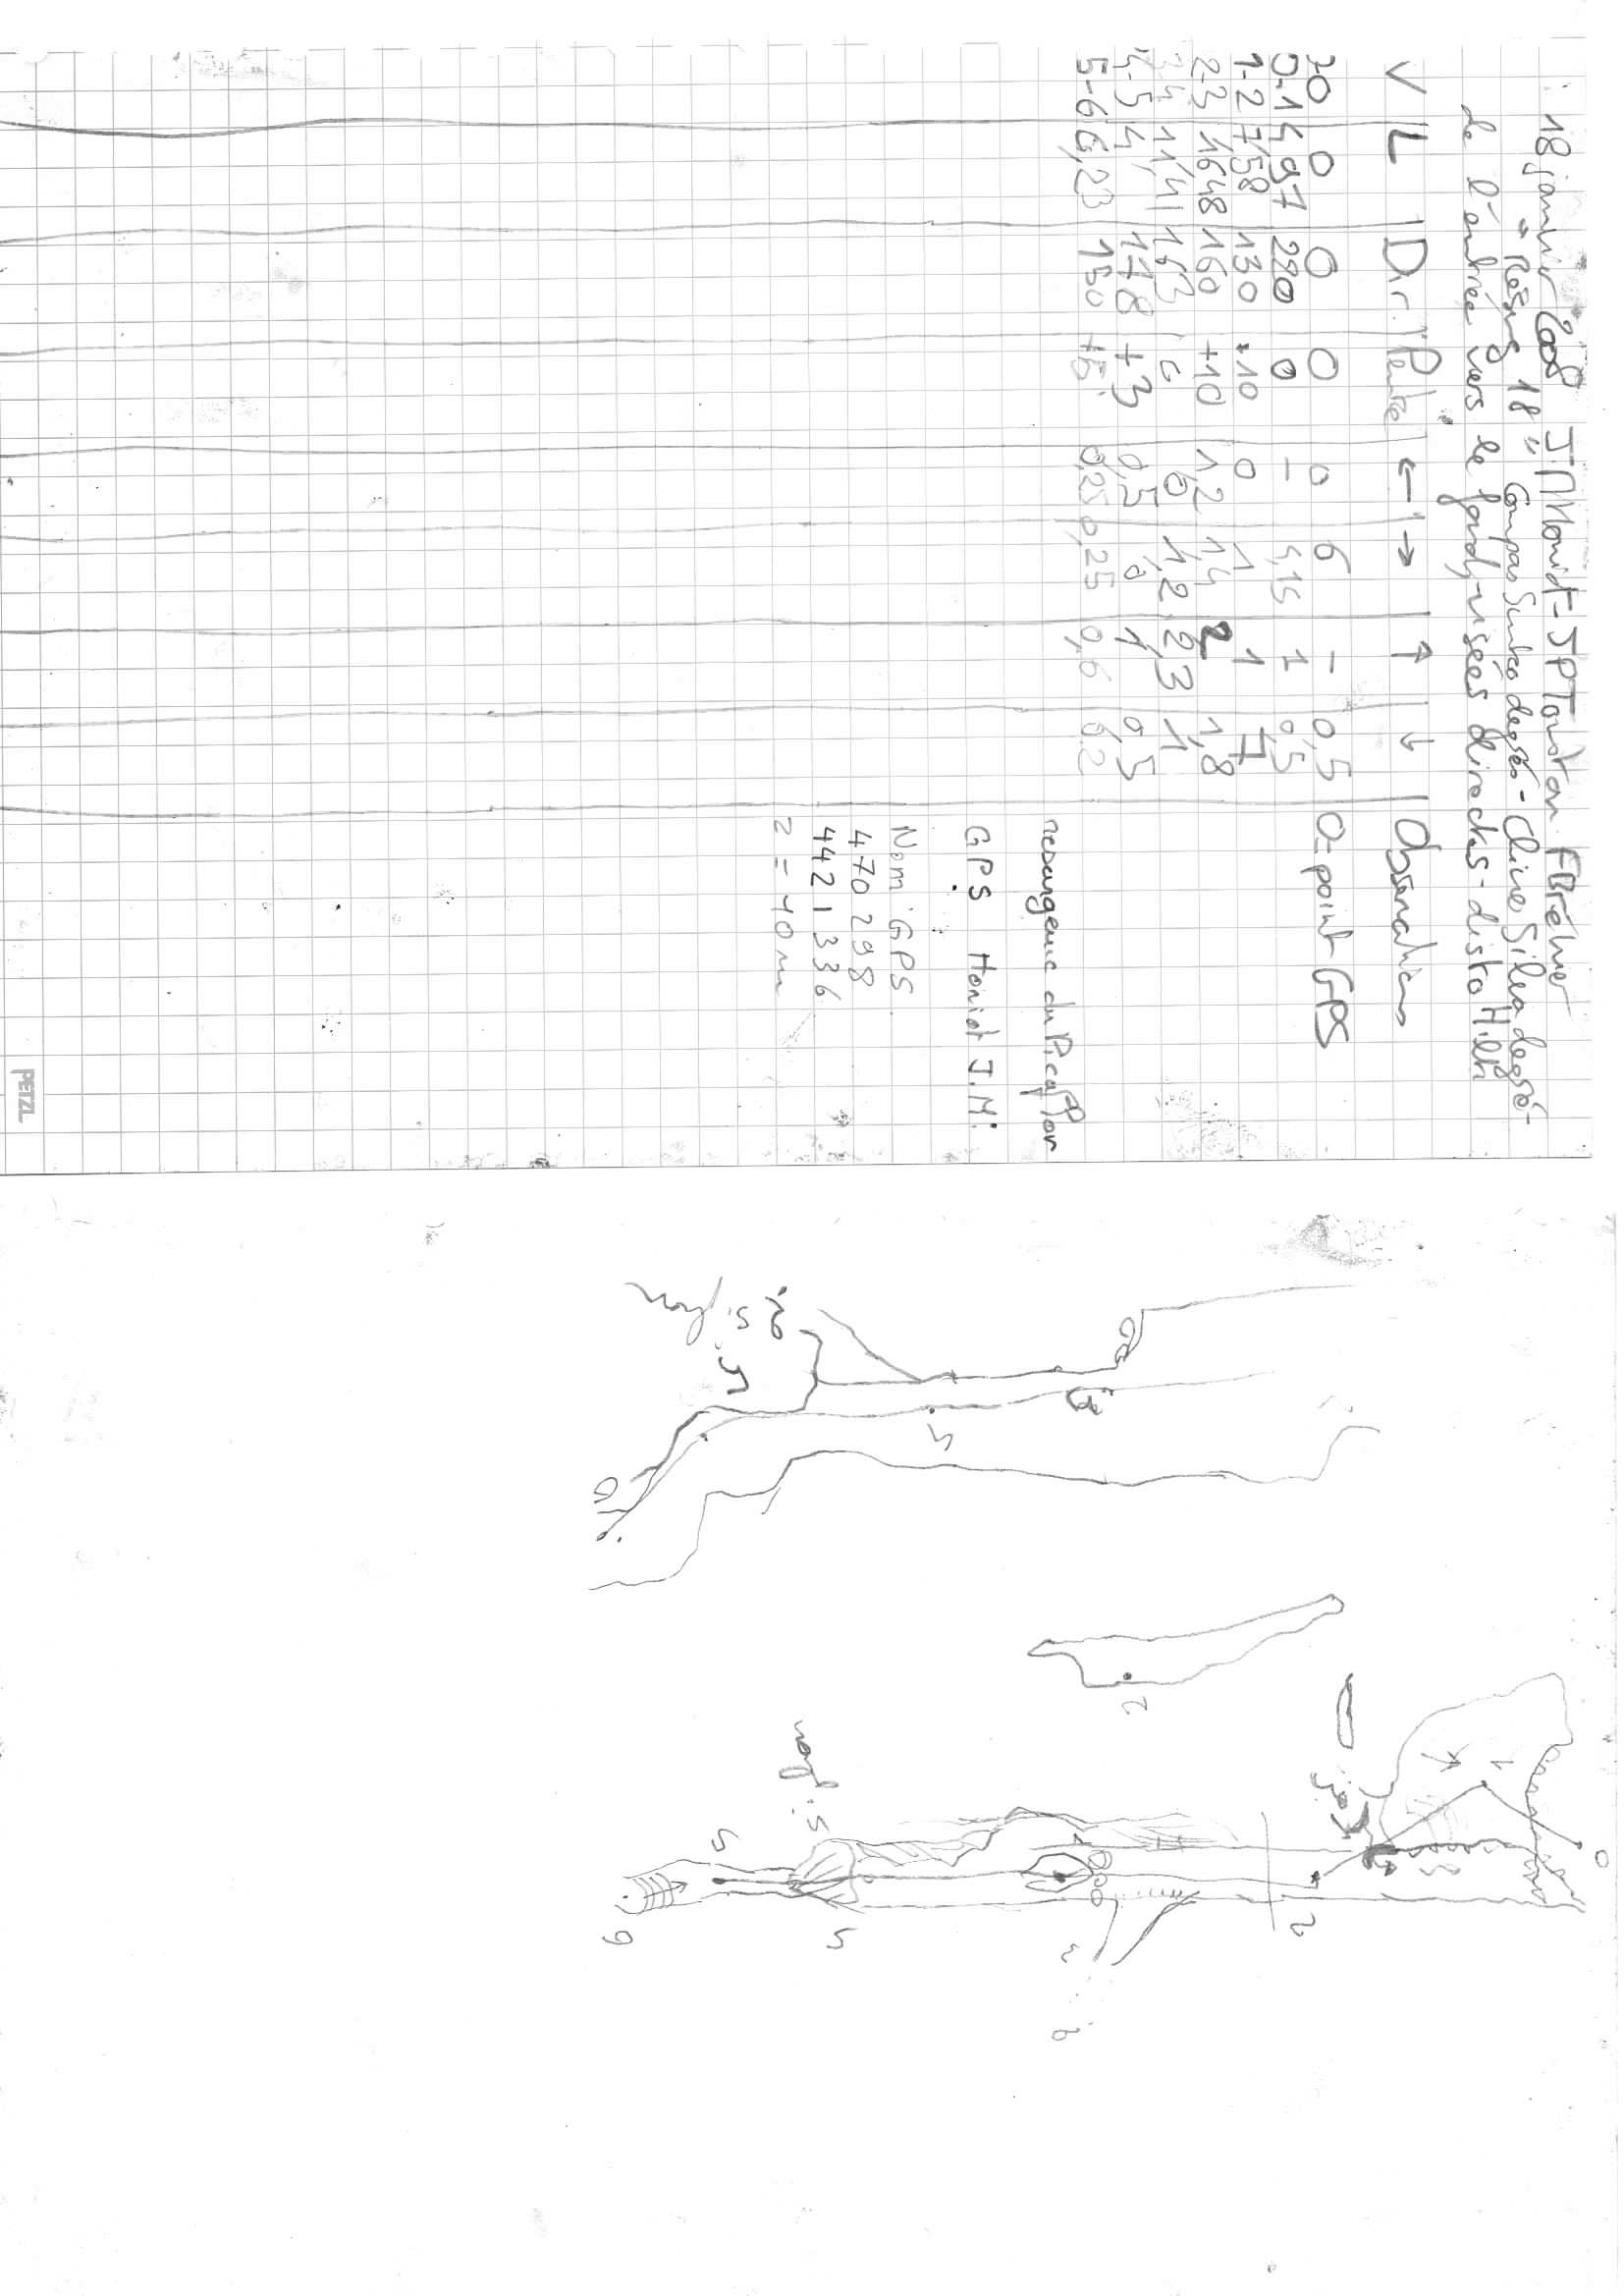 18 janvier 2008 JM Honiat - JP Tondon F Bréhier
→ Résurg 18" Compas Suunto degrés - Clino Silva degré -
de l'entrée vers le fond - visées directes - disto Hilti
V L Dir. Pente ← → ↑ ↓ Observations
0 0 0 0 6 - 0,5 0 point GPS
0-1 4,97 280 0 - 4,15 1 0,5
1-2 7,58 130 +10 0 1 1 7
2-3 16,48 160 +10 1,2 1,4 2 1,8
3-4 11,41 163 0 1,2 2,3 1
4-5 4, 178 +3 0,5 0 1 0,5
5-6 6,23 150 0,25 0,25 0,6 0,2
résurgence du Picaflor
GPS Honiat J.M.
Nom GPS
470298
4421336
Z = 40 m
PETZL
3
4
5
6
2
0
1
2
3
4
5
6